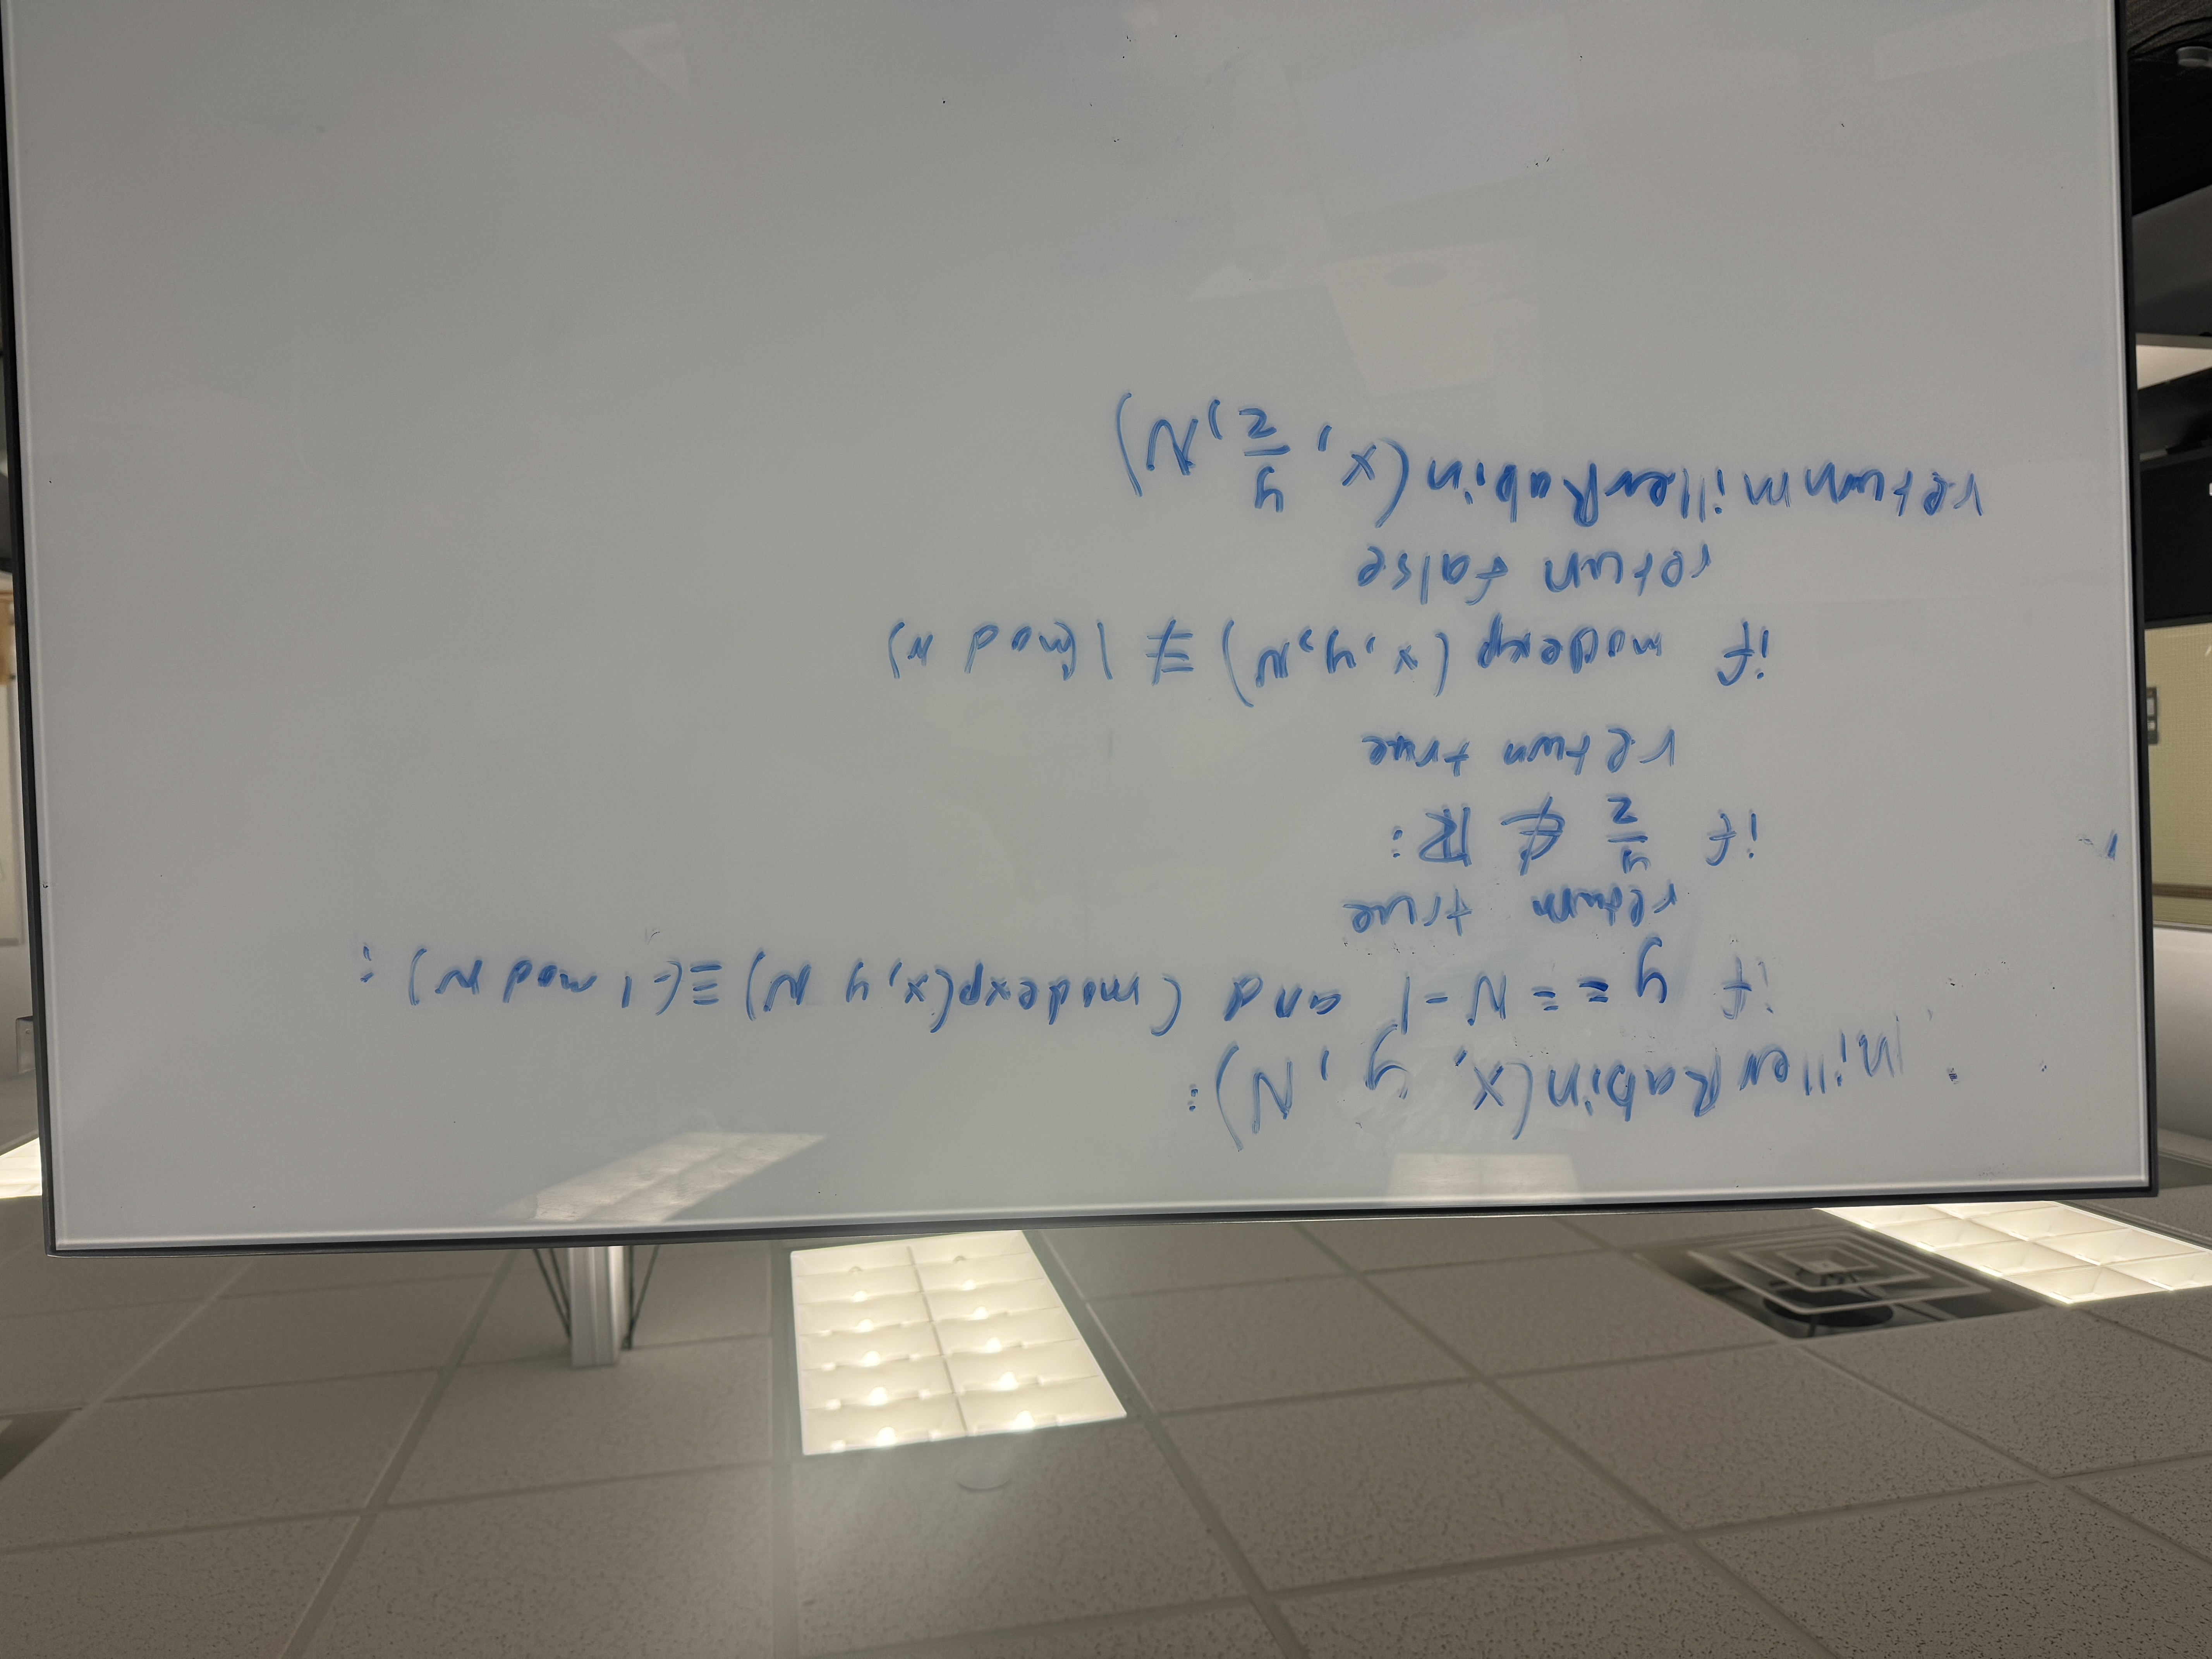 millerRabin(x, y, N):
if y == N-1 and (modexp(x, y N) ≡ (-1 mod N):
return true
if y/2 ∉ ℝ:
return true
if modexp(x, y, N) ≢ 1 (mod N)
retun false
return millerRabin(x, y/2, N)